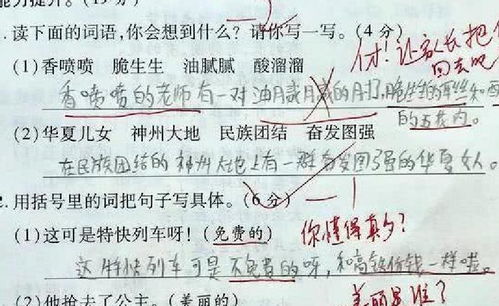 .读下面的词语,你会想到什么?请你写一写。(4分)
(1)香喷喷 脆生生 油腻腻 酸溜溜
让家长把你
回去吧
香喷喷的老师有一对油腻腻的肘子,脆生生的耳朵和酸
的五衣内。
(2)华夏儿女 神州大地 民族团结 奋发图强
在民族团结的神州大地上有一群奋发图强的华夏女人。
2.用括号里的词把句子写具体。(6分)
(1)这可是特快列车呀!(免费的)
你懂得真多?
这特快列车可是不免费的呀,和高铁价钱一样啦。
(2)他抢去了公主。(美丽的)
美丽是谁?